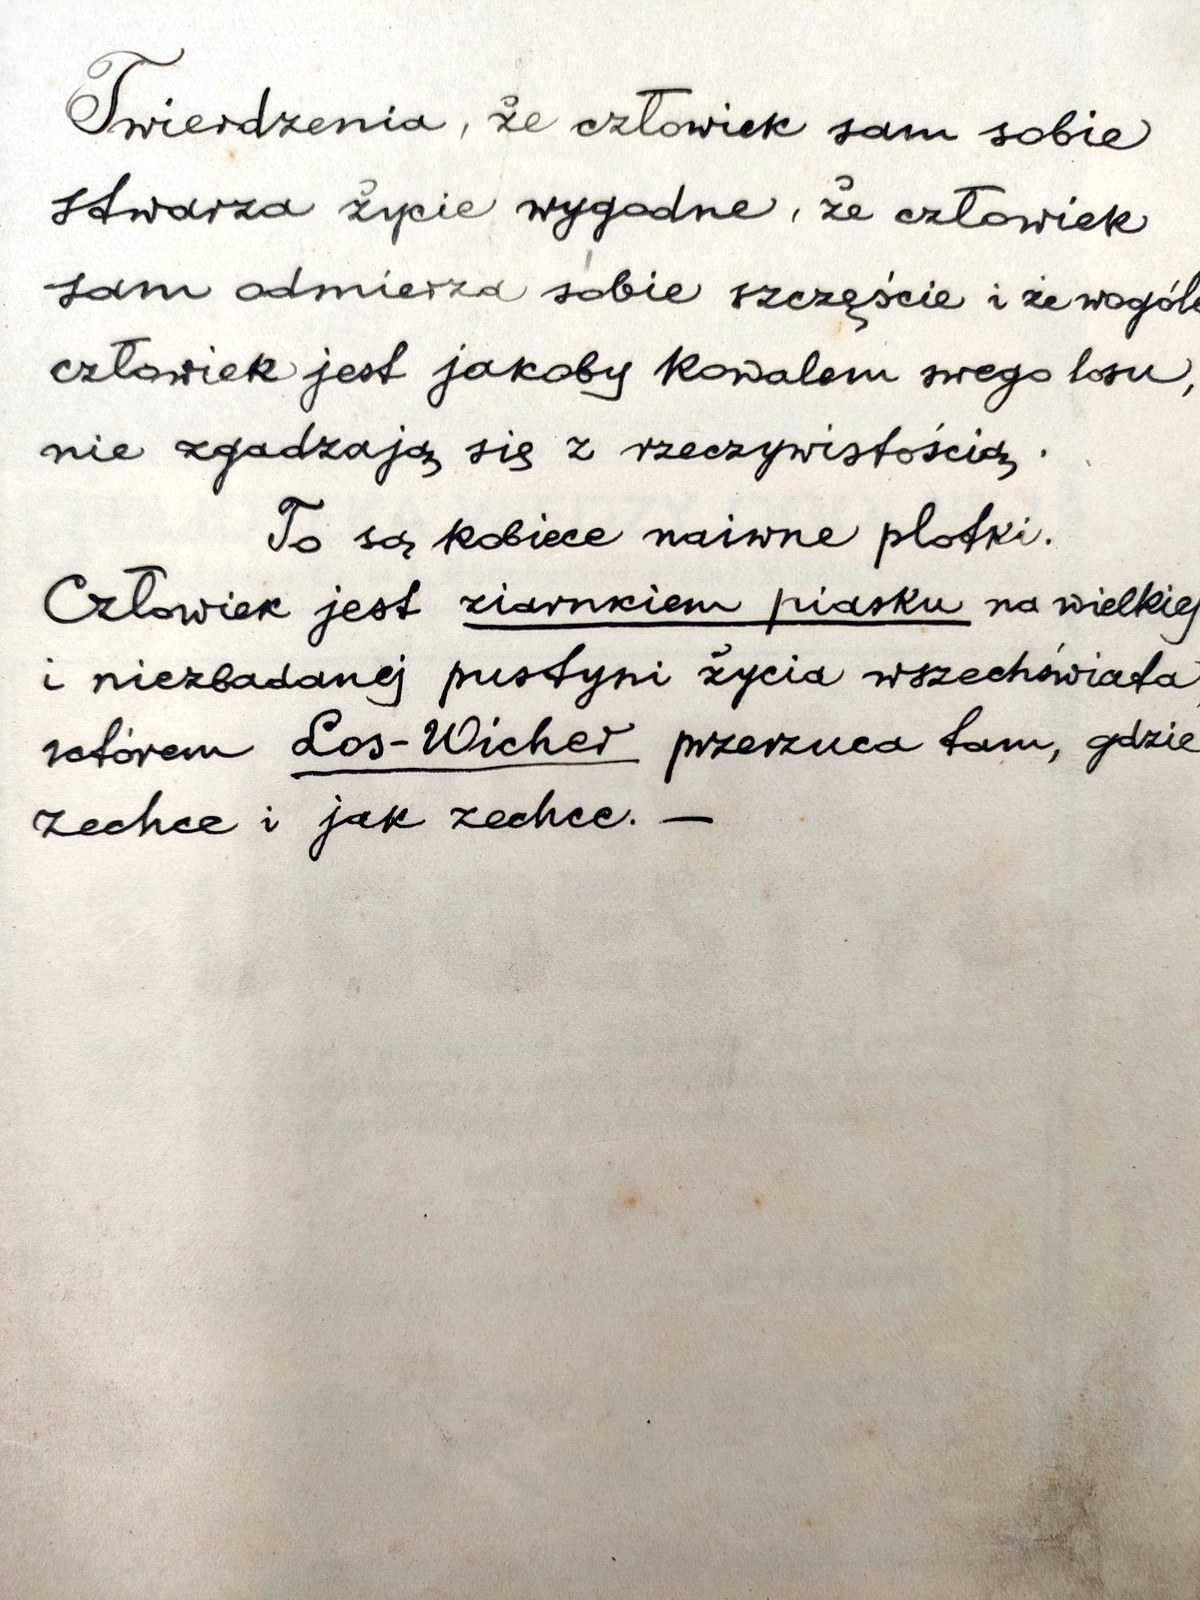 Twierdzenia, że człowiek sam sobie
stwarza życie wygodne, że człowiek
sam odmierza sobie szczęście i że wogóle
człowiek jest jakoby kowalem swego losu,
nie zgadzają się z rzeczywistością.
To są kobiece naiwne plotki.
Człowiek jest ziarnkiem piasku na wielkiej
i niezbadanej pustyni życia wszechświata,
którem Los-Wicher przerzuca tam, gdzie
zechce i jak zechce. —